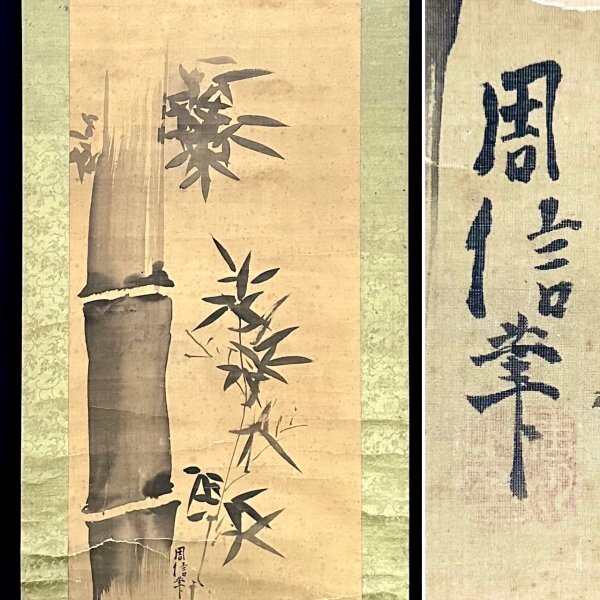 周信筆
周信筆